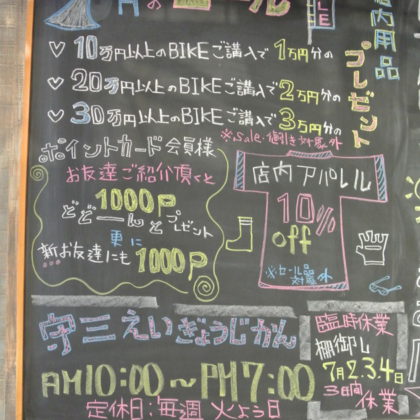 月の
セール
SALE
店内用品
プレゼント
♡ 10万円以上のBIKEご講入で1万円分の
♡ 20万円以上のBIKEご講入で2万円分の
♡ 30万円以上のBIKEご講入で3万円分の
※Sale・値引き対象外
ポイントカード会員様
お友達ご紹介頂くと
1000P
どどーんとプレゼント
更に
新お友達にも1000P
店内アパレル
10%
off
※セール品
対象外
守三えいぎょうじかん
AM10:00～PM7:00
定休日:毎週火よう日
臨時休業
棚卸し
7月2.3.4日
3日間
休業